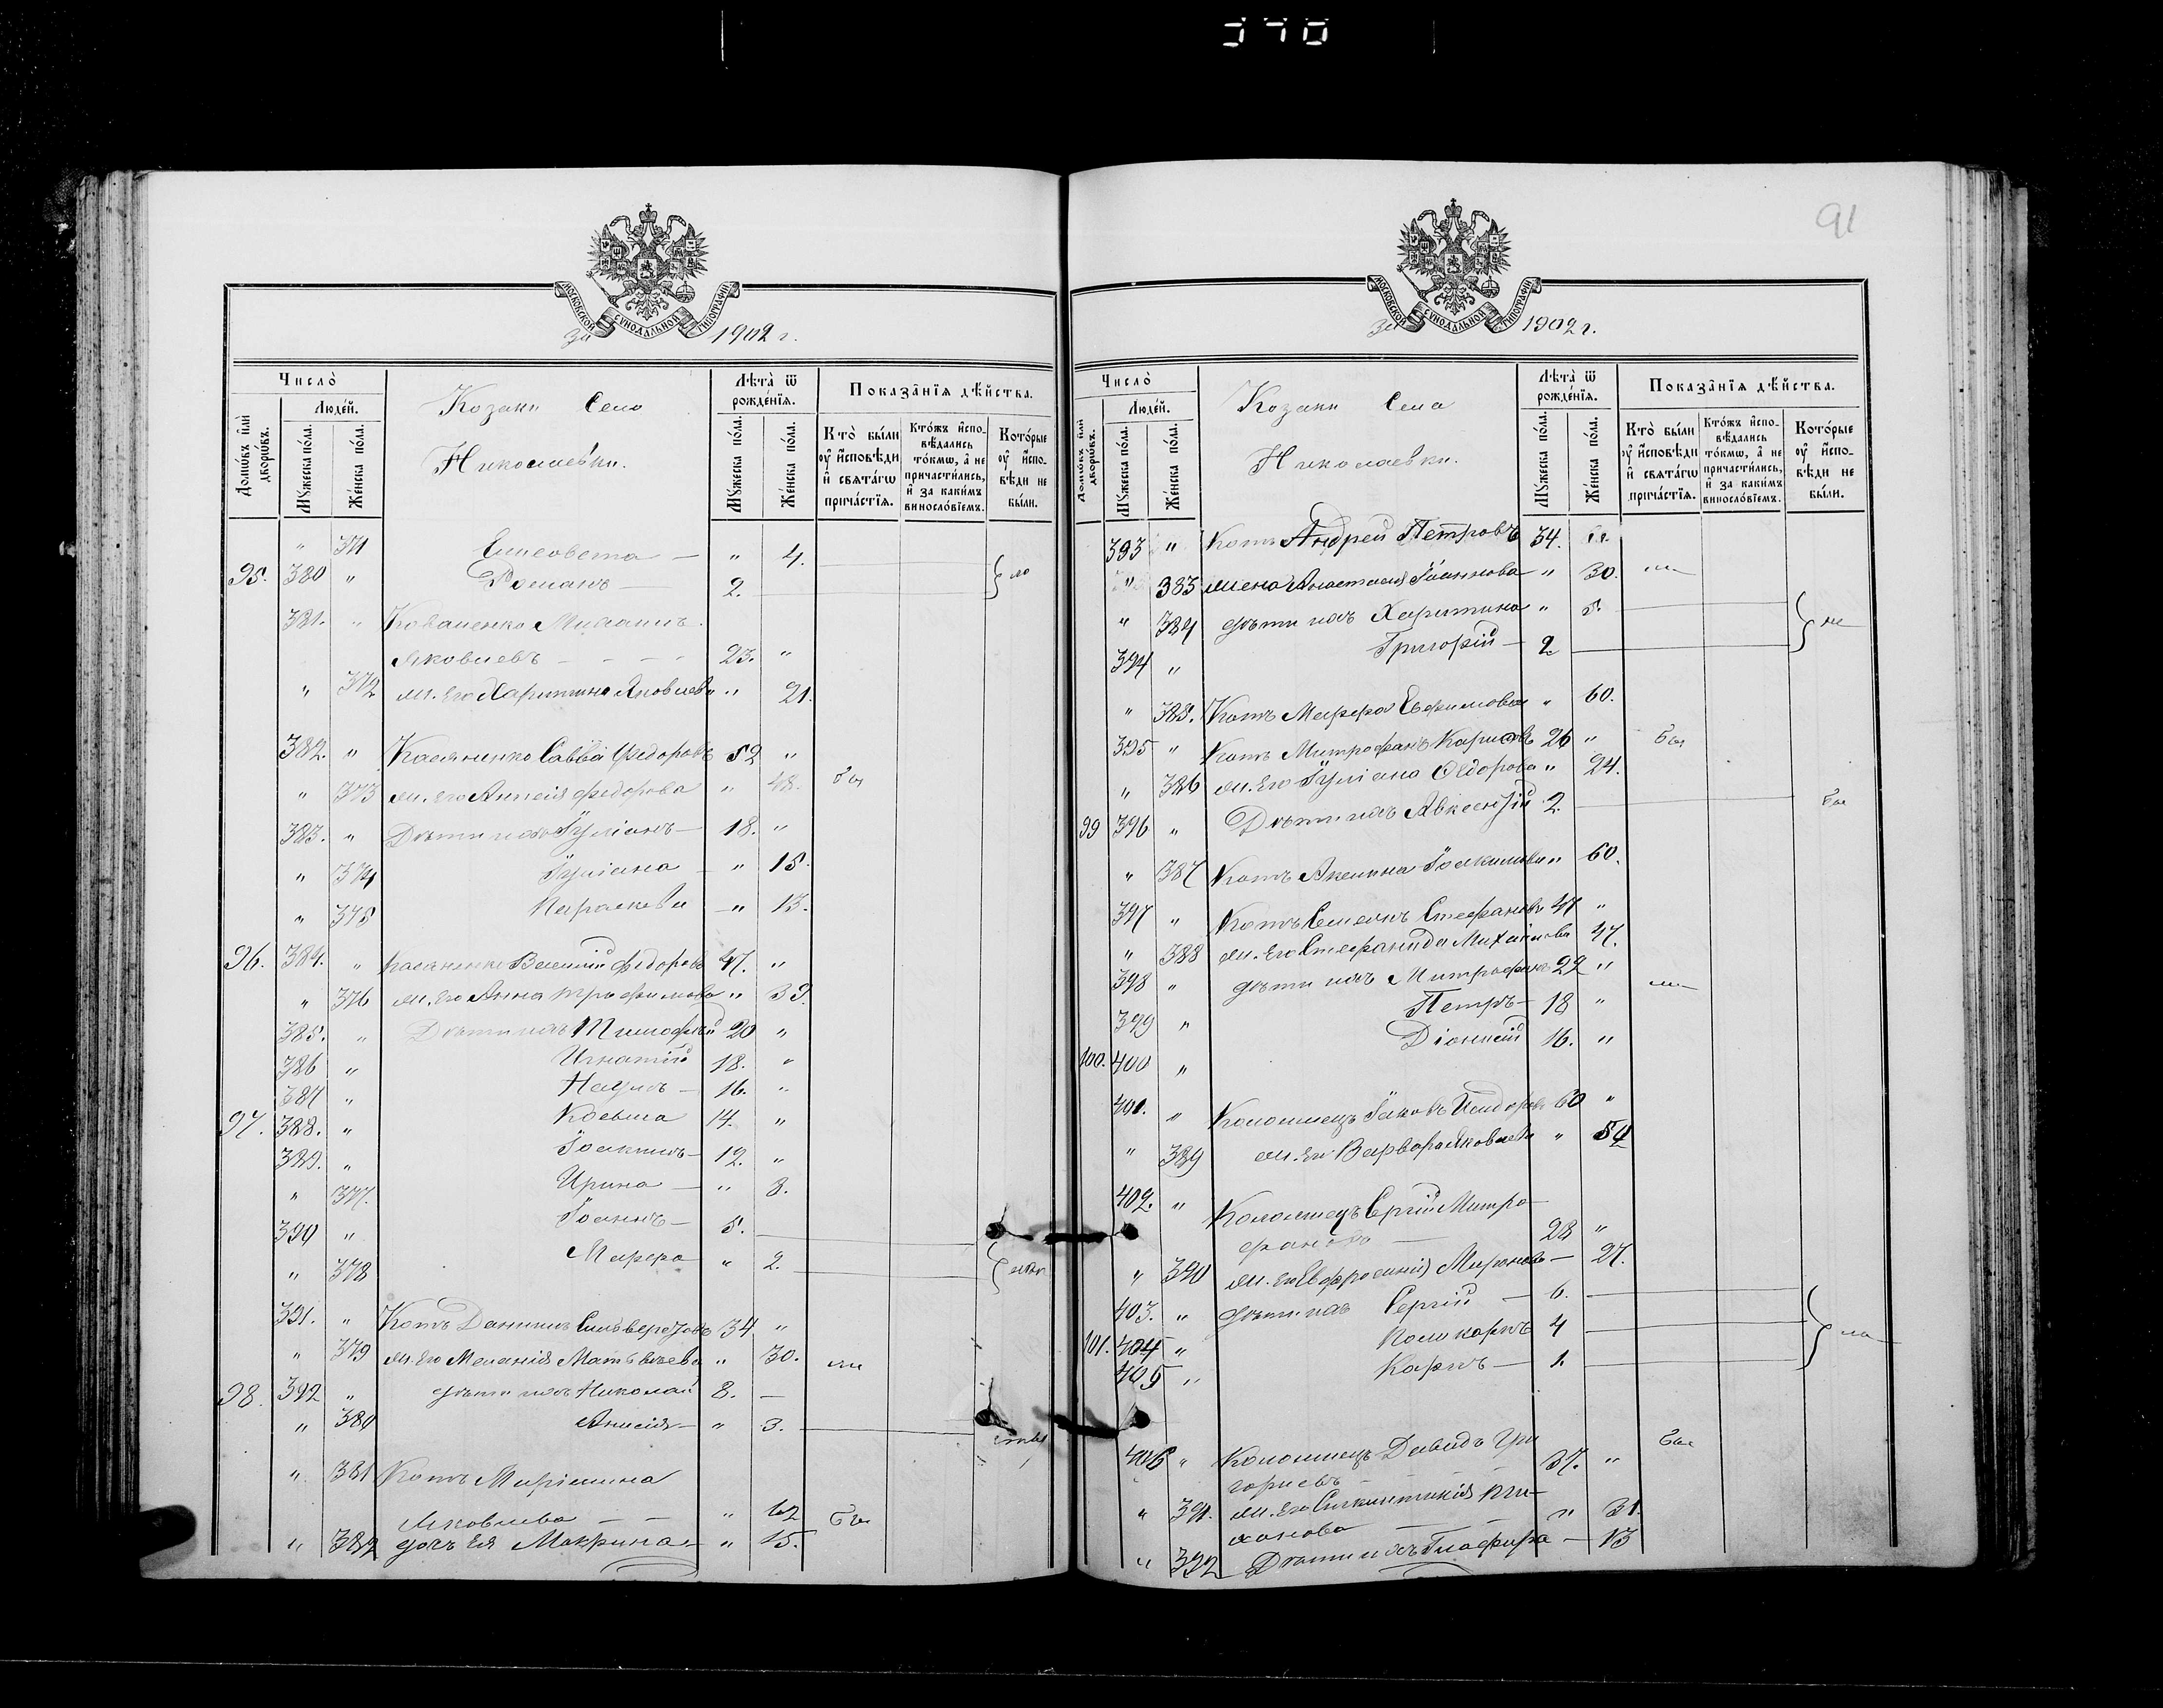 398
МОСКОВСКОЙ СУНОДАЛЬНОЙ ТИПОГРАФІИ
за 1902 г.
Число̀
Домѡ́въ и҆лѝ дворѡ́въ.
Люде́й.
Мꙋ́жеска по́ла.
Же́нска по́ла.
Козаки Село
Николаевки.
Лѣ́та ѿ рожде́нїѧ.
Мꙋ́жеска по́ла.
Же́нска по́ла.
Показа̑нїѧ дѣ́йства.
Кто̀ бы́ли ᲂу҆ и҆́сповѣди и҆ свѧта́гѡ прича́стїѧ.
Кто́жъ и҆спо- вѣ́дались то́кмѡ, а҆ не причасти́лись, и҆ за каки́мъ виносло́вїемъ.
Кото́рые ᲂу҆ и҆́спо- вѣди не бы́ли.
" 371 Елисовета — " 4.
95. 380 " Романъ — 2. ло
381. " Коваленко Михаилъ
Яковлевъ - - - 23. "
" 372 ж. его Харитина Яковлева " 21.
382. " Касяненко Савва Федоровъ 52 "
" 373 ж. его Анисія Федорова " 48. бы
383. " Дѣти ихъ Іуліанъ — 18. "
" 374 Іуліана — " 15.
" 375 Параскева — " 13.
96. 384. " Касяненко Василій Федоровъ 47. "
" 376 ж. его Анна Трофимова " 39.
385. " Дѣти ихъ Тимофей 20 "
386 " Игнатій 18. "
387 " Наумъ — 16. "
97. 388. " Косьма 14. "
389. " Іоакимъ — 12. "
" 377. Ирина — " 8.
390 " Іоаннъ — 5.
" 378 Марфа " 2.
391. " Котъ Даніилъ Сильверстовъ 34 "
" 379 ж. его Меланія Матвѣева " 30. ли
98. 392 " дѣти ихъ Николай 8. —
" 380 Анисія — " 3.
" 381 Котъ Маріамна
Яковлева — — " 62 Бы
" 382 дочь ея Макрина — " 15.
91
МОСКОВСКОЙ СУНОДАЛЬНОЙ ТИПОГРАФІИ
за 1902 г.
Число̀
Домѡ́въ и҆лѝ дворѡ́въ.
Люде́й.
Мꙋ́жеска по́ла.
Же́нска по́ла.
Козаки Села
Николаевки.
Лѣ́та ѿ рожде́нїѧ.
Мꙋ́жеска по́ла.
Же́нска по́ла.
Показа̑нїѧ дѣ́йства.
Кто̀ бы́ли ᲂу҆ и҆́сповѣди и҆ свѧта́гѡ прича́стїѧ.
Кто́жъ и҆спо- вѣ́дались то́кмѡ, а҆ не причасти́лись, и҆ за каки́мъ виносло́вїемъ.
Кото́рые ᲂу҆ и҆́спо- вѣди не бы́ли.
393 " Котъ Андрей Петровъ 34.
" 383 жена Анастасія Іоаннова " 30. ли
" 384 дѣти ихъ Харитина " 5. не
394 " Григорій — 2
" 385. Котъ Марфа Евфимова " 60.
395 " Котъ Митрофанъ Карповъ 26 " Бы
" 386 ж. его Іуліана Федорова " 24.
99 396 " Дѣти ихъ Авксентій 2. Бы
" 387 Котъ Акилина Іоакимова " 60.
397 " Котъ Симеонъ Стефановъ 47 "
" 388 ж. его Стефанида Михайлова 47.
398 " дѣти ихъ Митрофанъ 22 " ли
399 " Петръ — 18 "
100. 400 " Діонисій 16. "
401. " Коломіецъ Іаковъ Исидоровъ 60 "
" 389 ж. его Варвара Яковлева " 54
402. " Коломіецъ Сергій Митро-
фановъ — 28 "
" 390 ж. его Евфросинія Миронова — 27.
403. " дѣти ихъ Сергій — 6.
101. 404 " Поликарпъ 4 ли
405 " Карпъ — 1.
406 " Коломіецъ Давидъ Гри Бы
горіевъ 37. "
" 391. ж. его Синклитикія
" 31.
" 392 Дѣти ихъ Глафира — 13